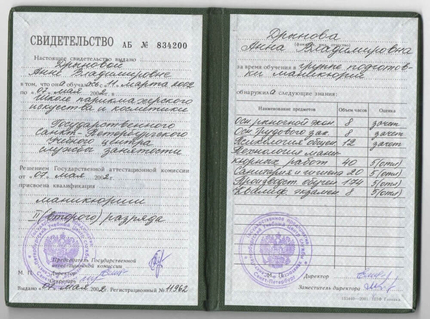 СВИДЕТЕЛЬСТВО АБ № 834200
Настоящее свидетельство выдано
Дрыновой
Анне Владимировне
в том, что она обучалась 11 марта 2002
07 мая 2002
Школе парикмахерского
искусства и косметики
Государственного
Санкт-Петербургского
Учебного центра
службы занятости
Решением Государственной аттестационной комиссии
07 мая 2002
присвоена квалификация
маникюрши
II (второго) разряда
Председатель Государственной
аттестационной комиссии
Директор
Выдано 07 мая 2002 Регистрационный № 11962
Дрынова
Анна Владимировна
за время обучения в группе подготов-
ки маникюрш
обнаружила следующие знания:
Наименование предметов Объем часов Оценка
Осн рыночной экон 8 зачет
Осн трудового зак. 8 зачет
Психология общен 12 зачет
Технология мани-
кюрных работ 40 5(отл)
Санитария и гигиена 20 5(отл)
Производст обучен 5(отл)
Квалиф. экзамен 8 5(отл)
Директор
Заместитель директора